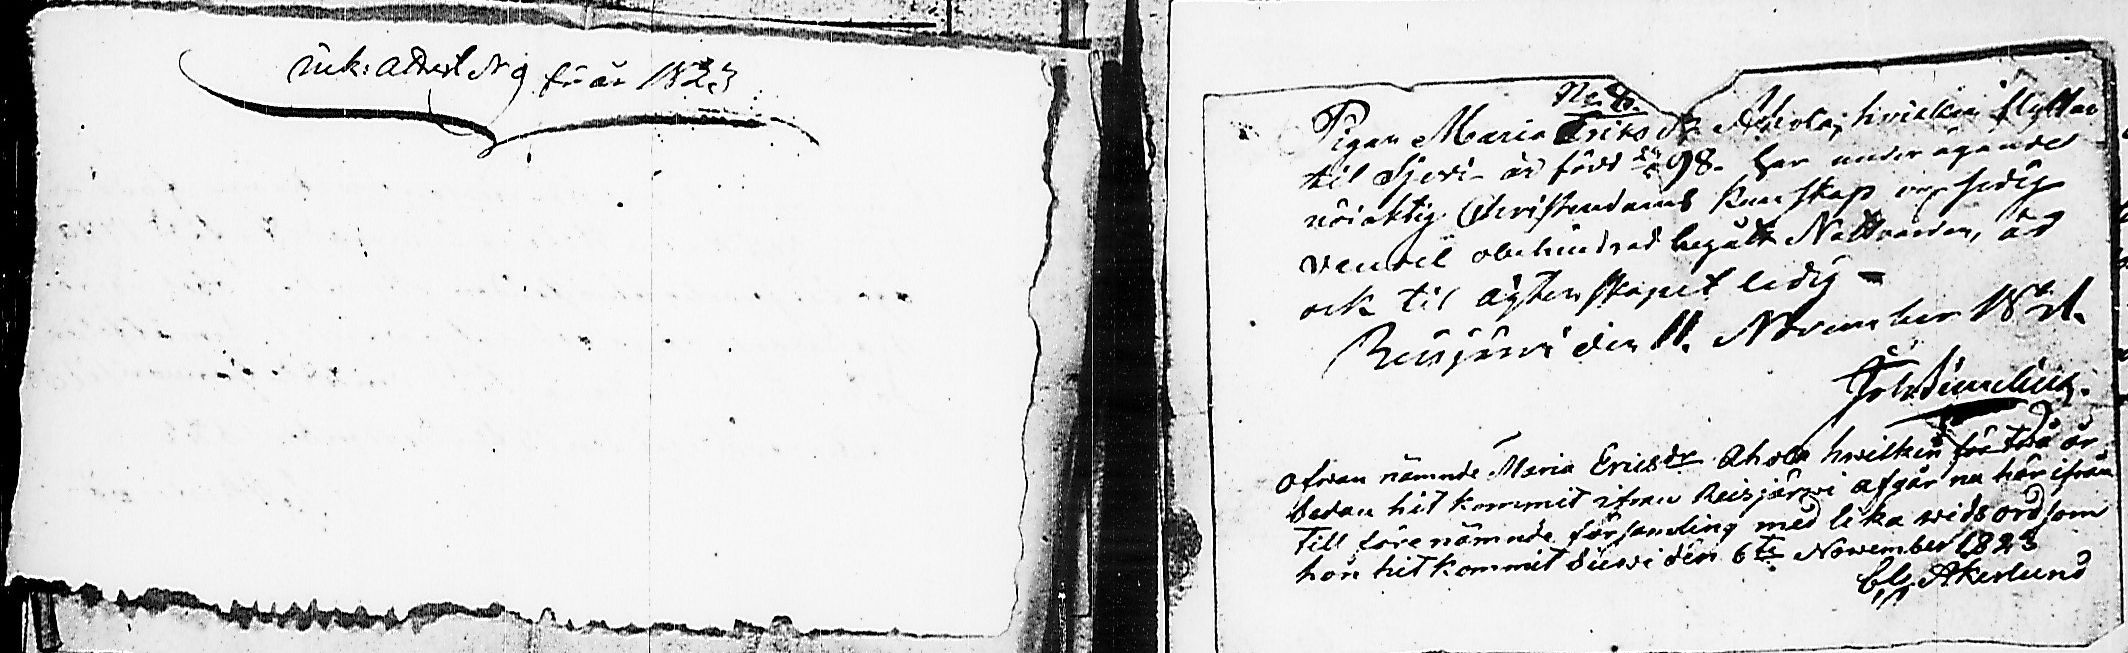 ink: attest N 9 för år 1823
No. 8.
Pigan Maria Eriks dr Ahola, hvilken flyttar
til Sjevi är född 98. har under ägande
nöiaktig Christendoms kunskap och sedig
vandel obehindrad begått Nattvarden, är
ock til ägtenskapet ledig
Reisjärvi den 11. November 1821.
Joh. Simelius.
ofwan nämnde Maria Ericsdr Ahola hwilken för två år
sedan hit kommit ifrån Reisjärwi afgår nu här ifrån
till före nämnde församling med lika widsord som
hon hit kommit Siewi den 6te November 1823
Åkerlund